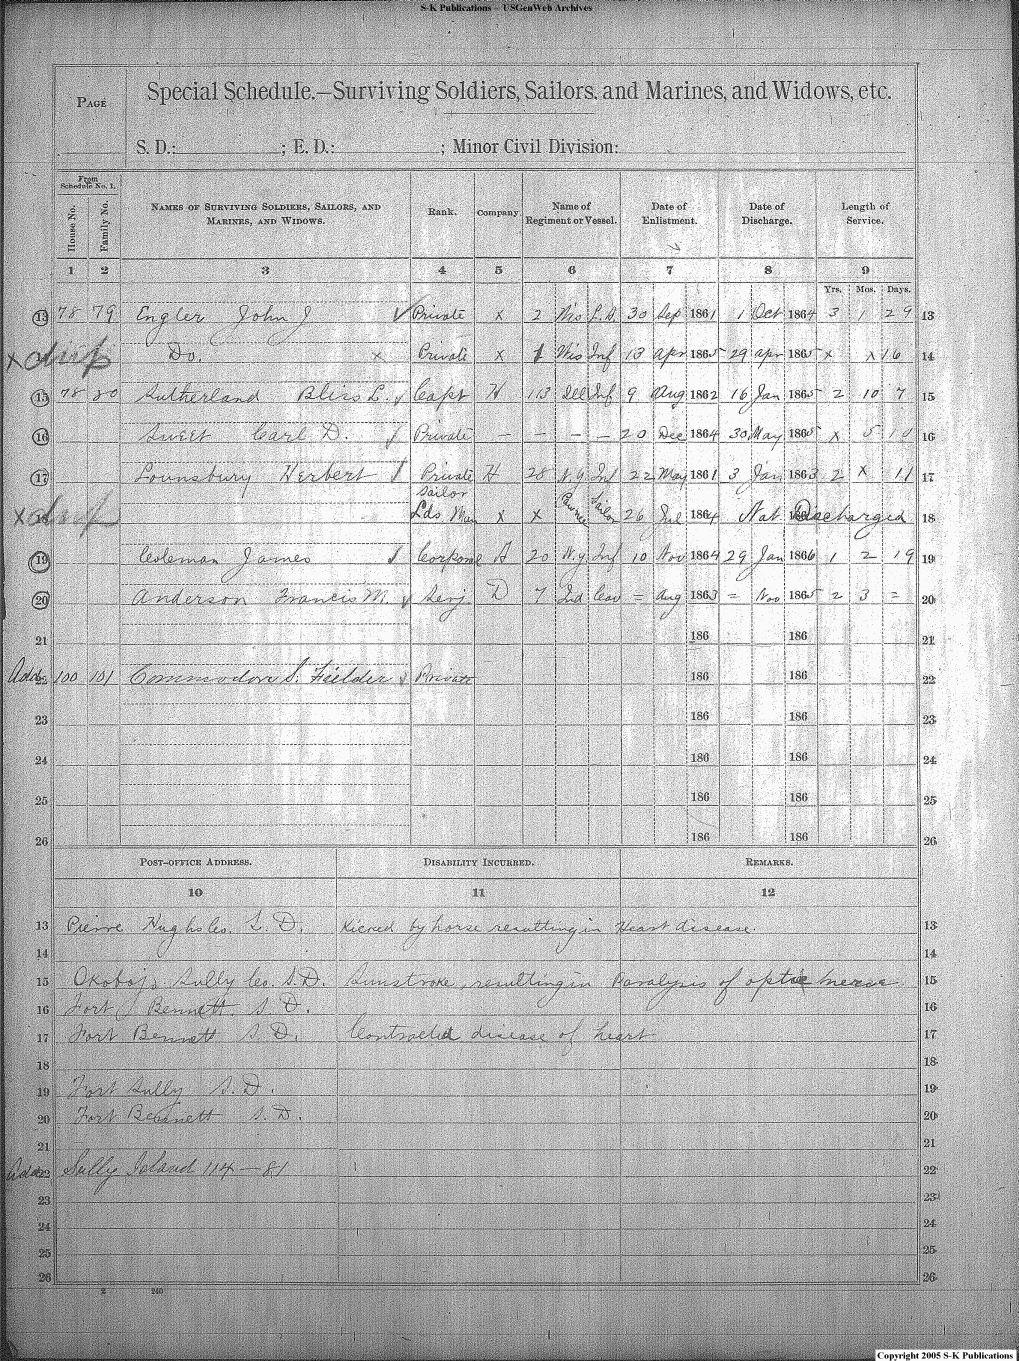 S-K Publications – USGenWeb Archives
PAGE
Special Schedule.—Surviving Soldiers, Sailors, and Marines, and Widows, etc.
S. D.: ; E. D.: ; Minor Civil Division:
From Schedule No. 1.
House No. Family No. NAMES OF SURVIVING SOLDIERS, SAILORS, AND MARINES, AND WIDOWS. Rank. Company Name of Regiment or Vessel. Date of Enlistment. Date of Discharge. Length of Service.
1 2 3 4 5 6 7 8 9
Yrs. Mos. Days.
13 78 79 Engler John J Private x 2 Wis 30 Sep 1861 1 Oct 1864 3 1 29 13
x Do. x Private x 1 Wis Inf 13 Apr 1865 29 Apr 1865 x x 16 14
15 78 80 Sutherland Bliss L. Capt H 113 Ill Inf 9 Aug 1862 16 Jan 1865 2 10 7 15
16 Sweet Carl D. Private – – – – 20 Dec 1864 30 May 1865 x 5 10 16
17 Lounsbury Herbert Private H 28 N.Y. Inf 22 May 1861 3 Jan 1863 2 x 11 17
Sailor
x 18 Lds. Man x x Pawnee 26 Jul 1864 Not Discharged 18
19 Coleman James Corporal A 20 N.Y. Inf 10 Nov 1864 29 Jan 1866 1 2 19 19
20 Anderson Francis M. Serj. D 7 Ind Cav = Aug 1863 = Nov 1865 2 3 = 20
21 186 186 21
Add. 22 100 101 Commodore S. Fielder Private 186 186 22
23 186 186 23
24 186 186 24
25 186 186 25
26 186 186 26
POST-OFFICE ADDRESS. DISABILITY INCURRED. REMARKS.
10 11 12
13 Pierre Hughs Co. S. D. Kicked by horse resulting in Heart disease. 13
14 14
15 Okoboji Sully Co. S.D. Sunstroke, resulting in Paralysis of optic nerve 15
16 Fort Bennett S. D. 16
17 Fort Bennett S. D. Contracted disease of heart 17
18 18
19 Fort Sully S. D. 19
20 Fort Bennett S. D. 20
21 21
Add. 22 Sully Island 114 – 81 22
23 23
24 24
25 25
26 26
2 240
Copyright 2005 S-K Publications